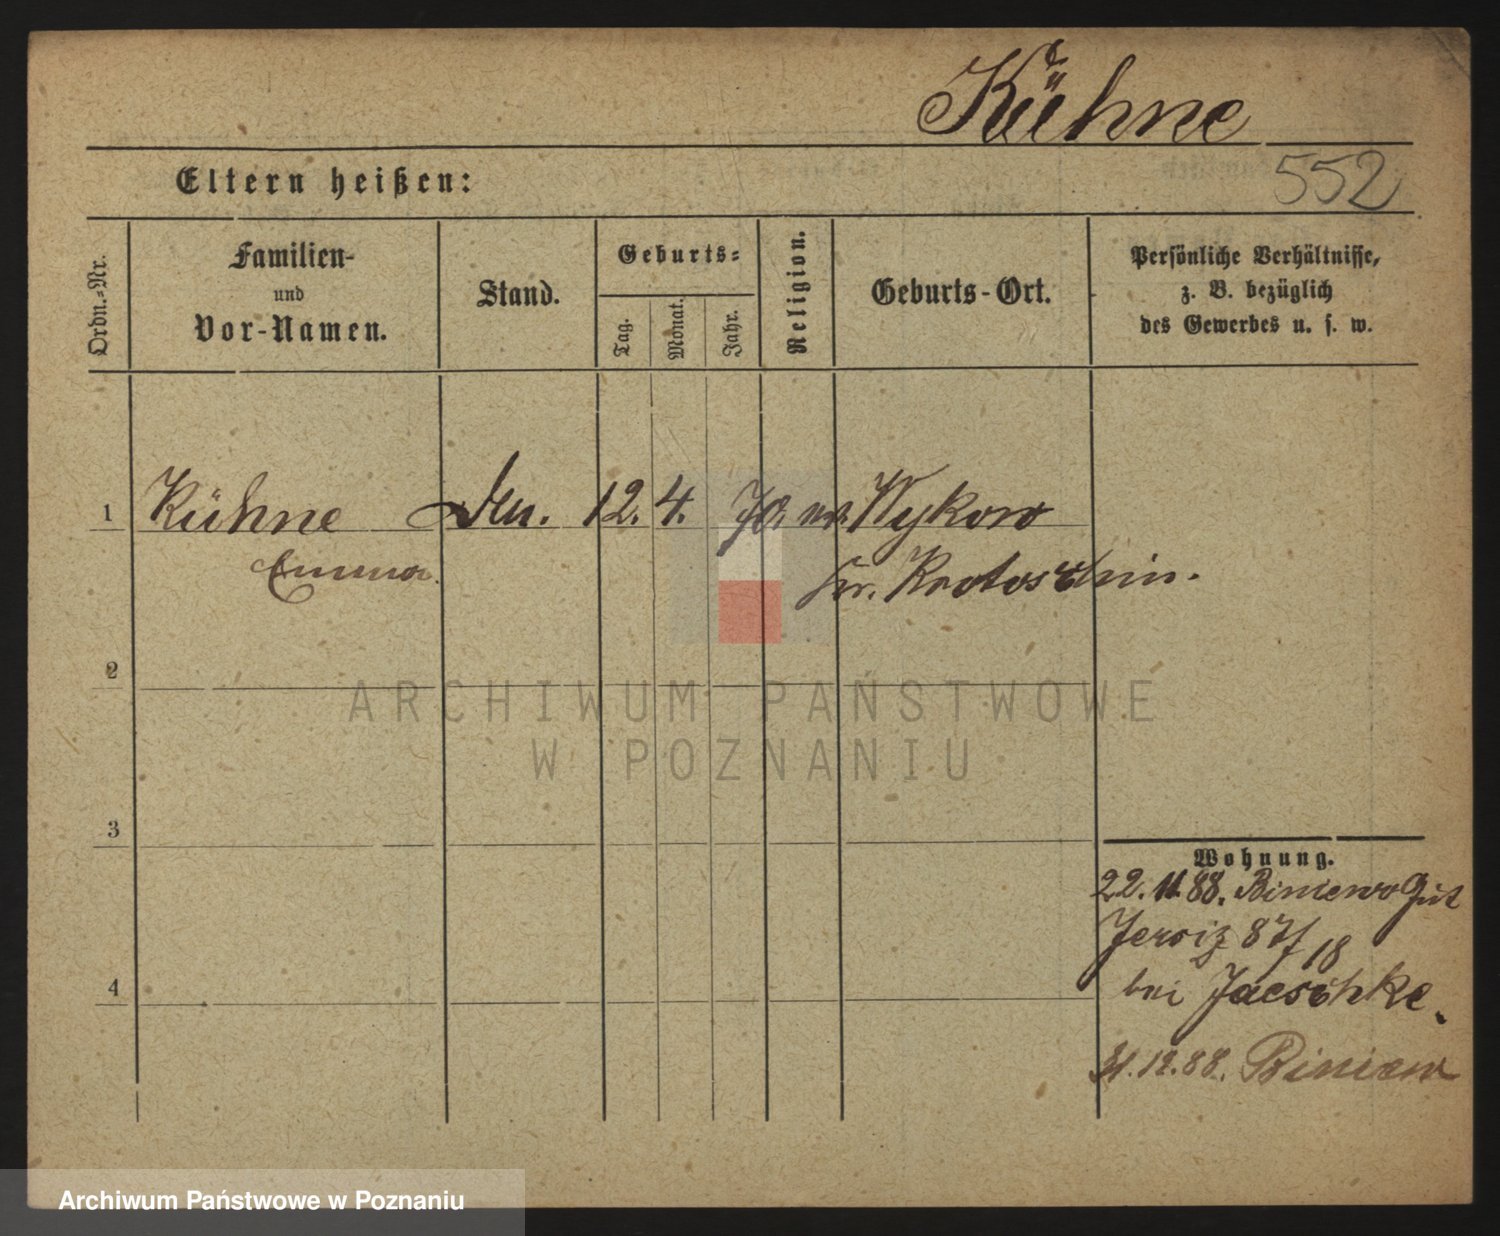 Kühne
Eltern heißen:
552
Ordn.-Nr.
Familien-
und
Vor-Namen.
Stand.
Geburts-
Tag.
Monat.
Jahr.
Religion.
Geburts-Ort.
Persönliche Verhältnisse,
z. B. bezüglich
des Gewerbes u. s. w.
1 Kühne 12. 4. 70. ev. Wykow
Emma Kr. Krotoschin.
2
ARCHIWUM PAŃSTWOWE
W POZNANIU
3
Wohnung.
22. 11. 88. Biniewo Gut
Jersiz 87/18
4
bei Jaeschke.
31. 12. 88. Biniew
Archiwum Państwowe w Poznaniu